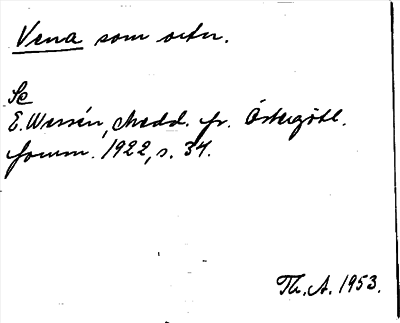 Vena som ortn.
Se
E. Wessén, Medd. fr. Östergötl.
fornm. 1922, s. 34.
Th. A. 1953.